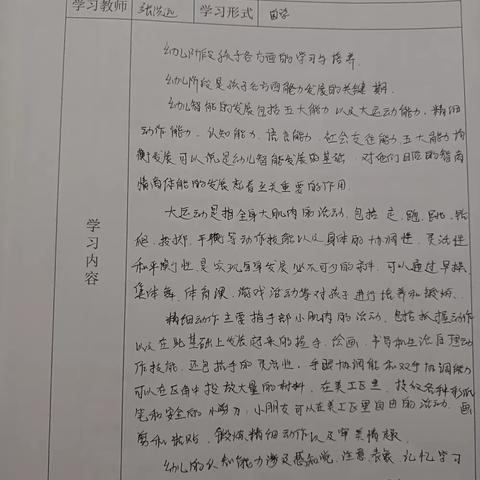 学习教师 学习形式 自学
学习内容
幼儿阶段孩子各方面的学习与培养
幼儿阶段是孩子各方面能力发展的关键期
幼儿智能的发展包括五大能力以及大运动能力、精细
动作能力、认知能力、语言能力、社会交往能力五大能力均
衡发展可以说是幼儿智能发展的基础,对他们日后的智商
情商体能的发展起着至关重要的作用
大运动是指全身大肌肉的活动,包括走、跑、跳、钻
爬、投掷、平衡等动作技能以及身体的协调性、灵活性
和平衡性是实现自身发展必不可少的条件,可以通过早操、
集体舞、体育课、游戏活动等对孩子进行培养和锻炼.
精细动作主要指手部小肌肉的活动,包括抓握动作
以及在此基础上发展起来的握手、绘画、书写和生活自理动
作技能,还包括手的灵活性,手眼协调能和双手协调能力
可以在区角中投放大量的材料,在美工区里,投放各种形状
笔和安全的小剪刀,小朋友可以在美工区里自由的活动.画
剪和粘贴,锻炼精细动作以及审美情趣.
幼儿的认知能力涉及感知觉、注意、表象、记忆学习